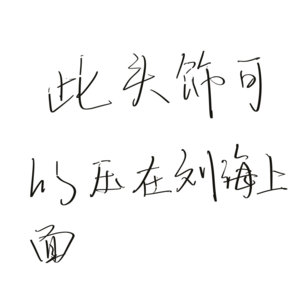 此头饰可
以压在刘海上
面